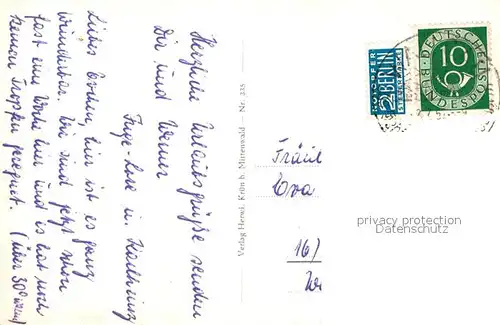 Liebes Evchen, hier ist es ganz
wunderbar. Wir sind jetzt schon
fast eine Woche hier und es hat noch
keinen Tropfen geregnet. (über 30° warm)
Herzliche Urlaubsgrüße senden
Dir und Werner
Inge-Lore u. Karlheinz
Verlag Hernd. Krün b. Mittenwald — Nr. 235
NOTOPFER
2 BERLIN
STEUERMARKE
DEUTSCHE
BUNDESPOST
10
Fräul
Eva
16)
privacy protection
Datenschutz